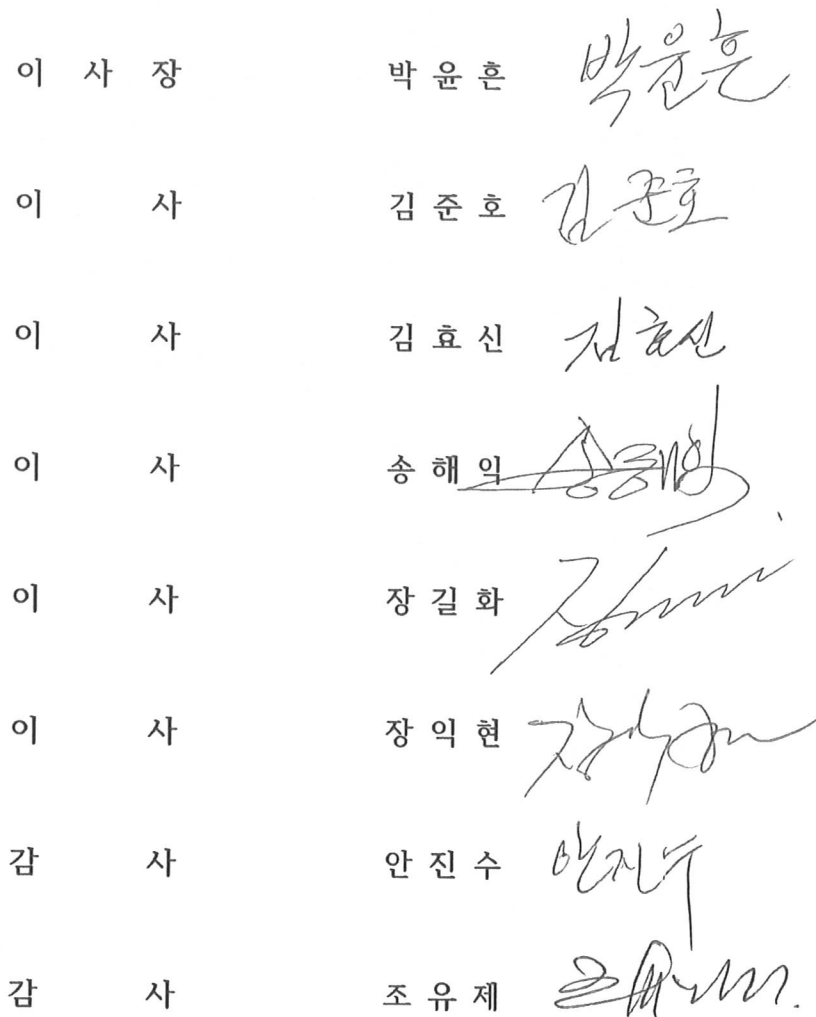 이 사 장 박 윤 흔 박윤흔
이 사 김 준 호 김준호
이 사 김 효 신 김효신
이 사 송 해 익 송해익
이 사 장 길 화
이 사 장 익 현
감 사 안 진 수 안진수
감 사 조 유 제